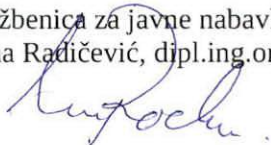 žbenica za javne nabavk
na Radičević, dipl.ing.or